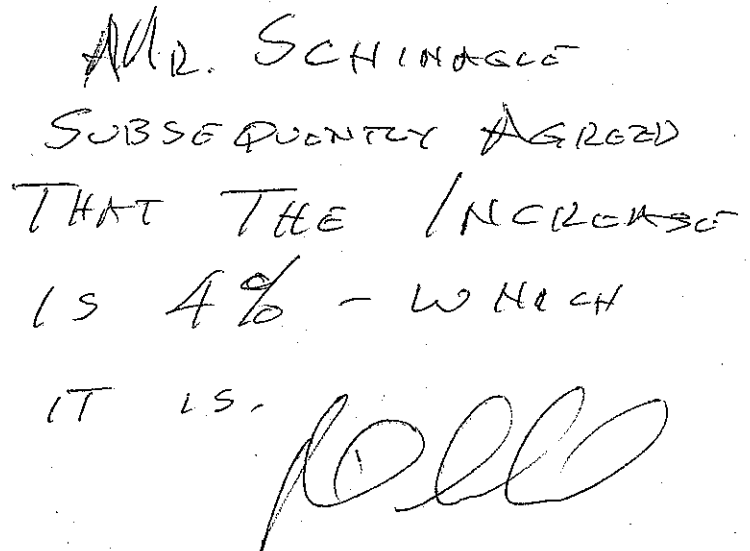 MR. SCHINAGLE
SUBSEQUENTLY AGREED
THAT THE INCREASE
IS 4% - WHICH
IT IS.